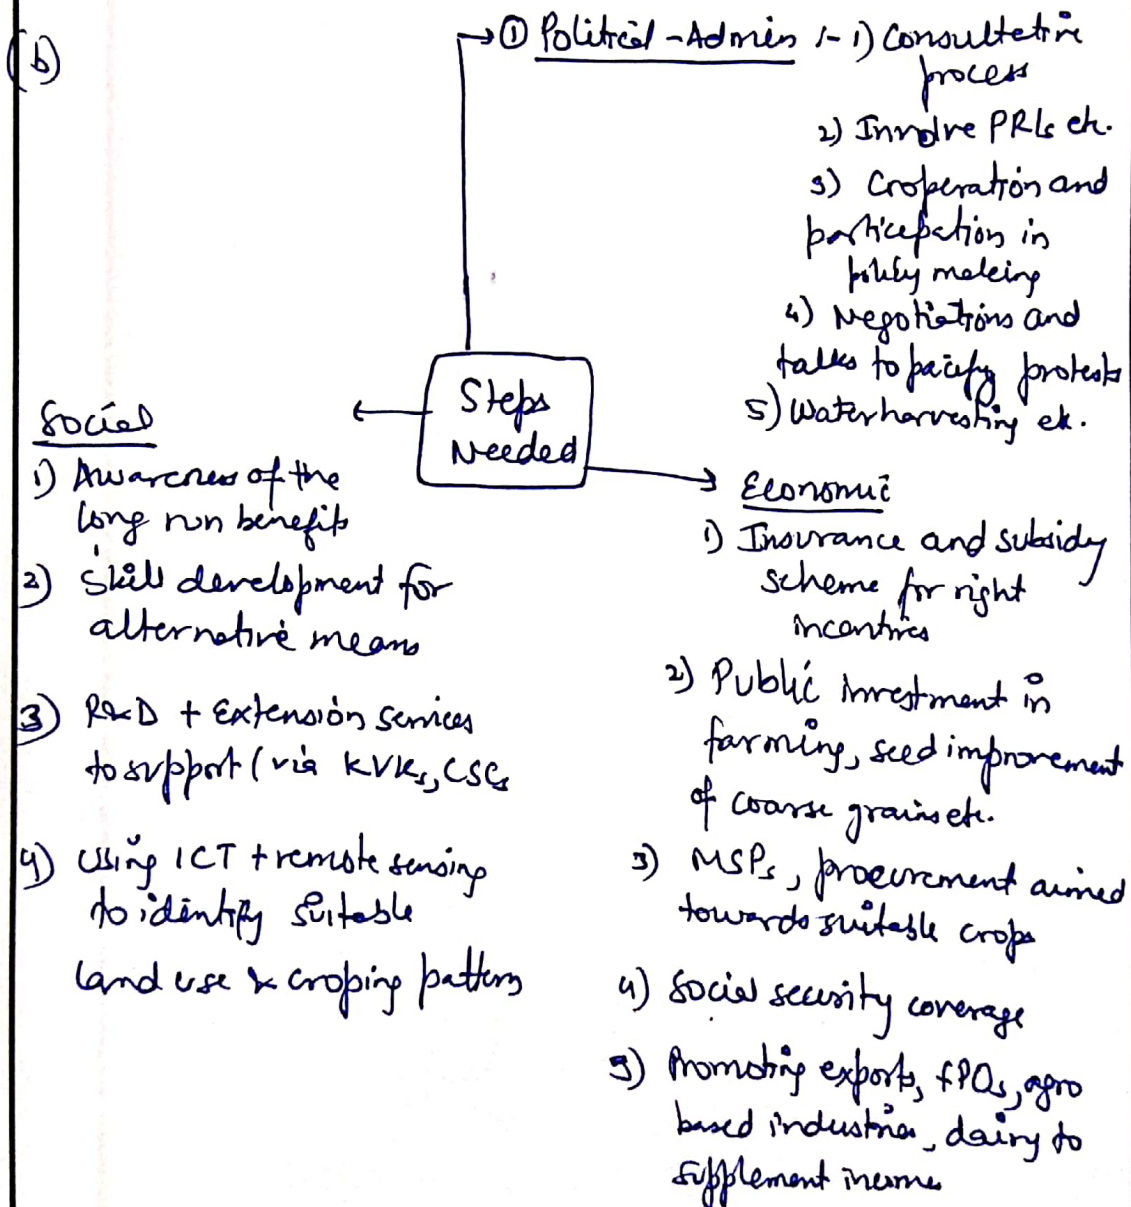 (b)
① Political - Admin :- 1) Consultative
process
2) Involve PRIs etc.
3) Cooperation and
participation in
policy making
4) Negotiations and
talks to pacify protests
5) Water harvesting etc.
Steps
Needed
Social
1) Awareness of the
long run benefits
2) Skill development for
alternative means
3) R&D + Extension services
to support (via KVKs, CSCs
4) Using ICT + remote sensing
to identify suitable
land use & croping pattern
Economic
1) Insurance and subsidy
scheme for right
incentives
2) Public investment in
farming, seed improvement
of coarse grains etc.
3) MSPs, procurement aimed
towards suitable crops
4) Social security coverage
5) Promoting exports, FPOs, agro
based industries, dairy to
supplement income